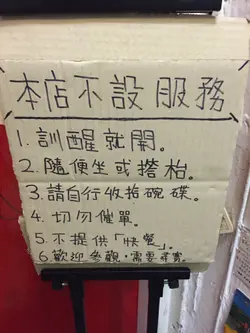 本店不設服務
1. 訓醒就開。
2. 隨便坐或搭枱。
3. 請自行收拾碗碟。
4. 切勿催單。
5. 不提供「快餐」。
6. 歡迎參觀,需要尋寶。